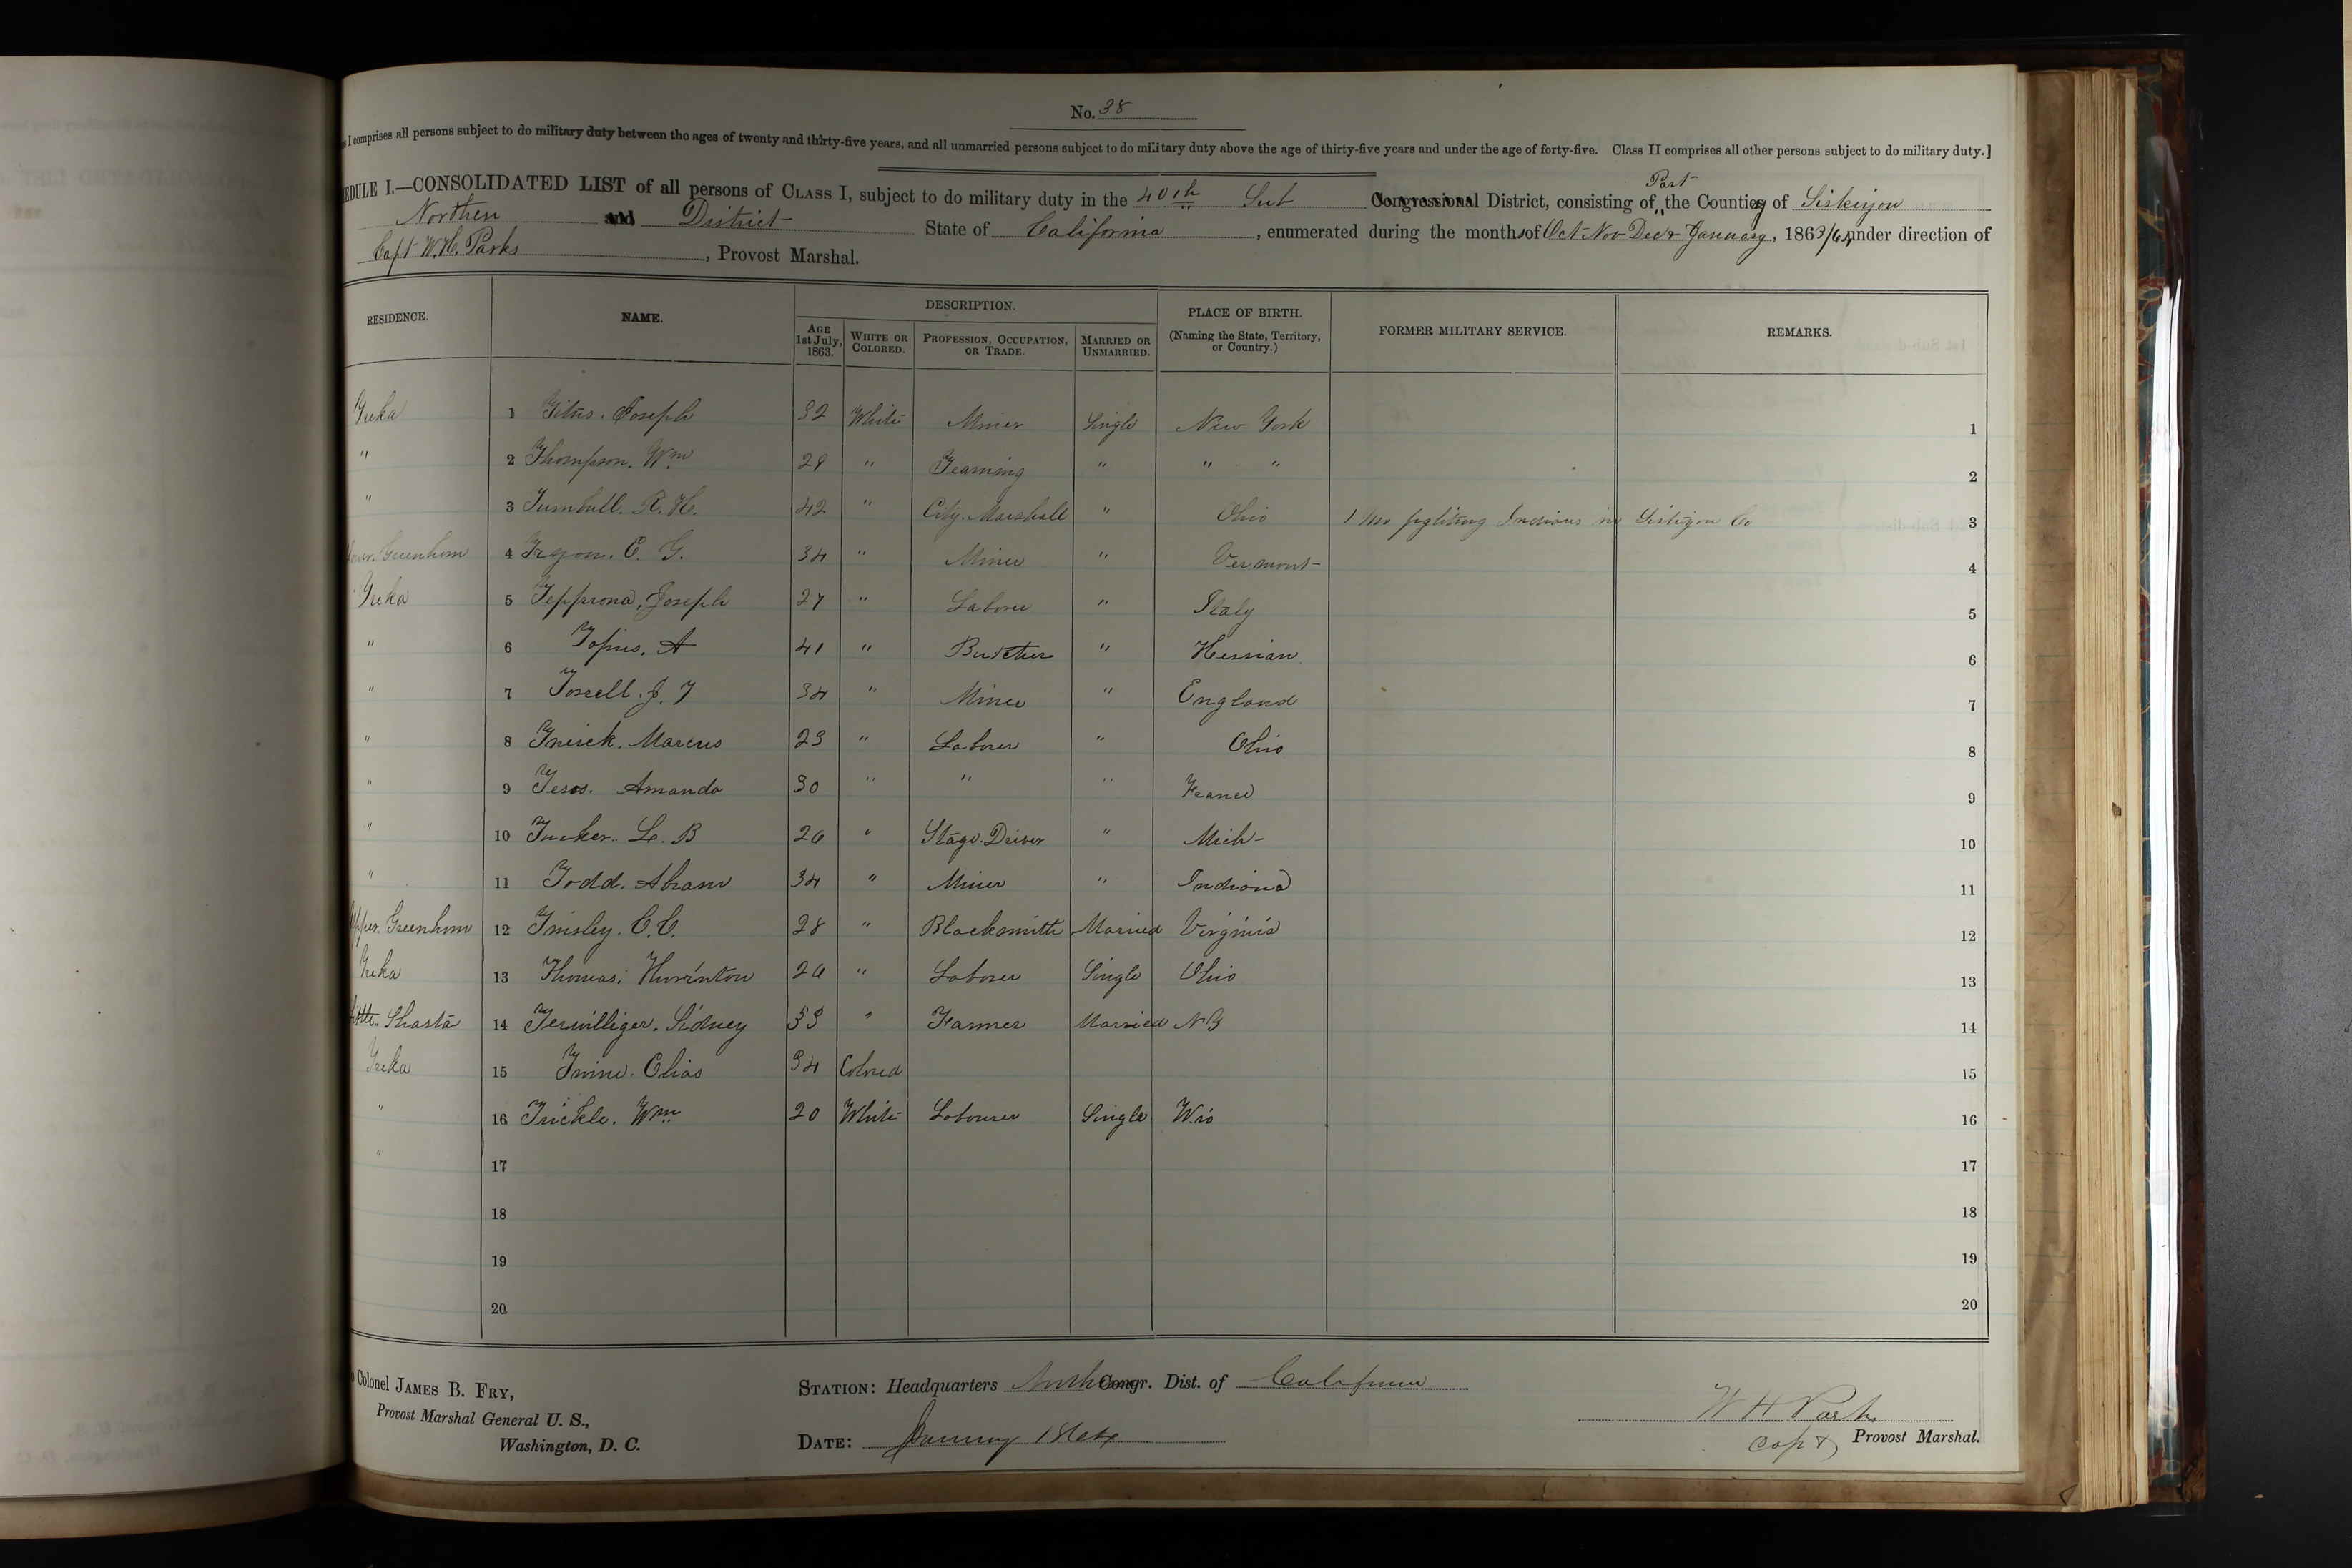 No. 38
I comprises all persons subject to do military duty between the ages of twenty and thirty-five years, and all unmarried persons subject to do military duty above the age of thirty-five years and under the age of forty-five. Class II comprises all other persons subject to do military duty.]
EDULE I.—CONSOLIDATED LIST of all persons of CLASS I, subject to do military duty in the 40th Sub Congressional District, consisting of Part the Counties of Siskiyou
Northern and District State of California, enumerated during the months of Oct Nov Dec & January, 1863/64 under direction of
Capt W. H. Parks, Provost Marshal.
RESIDENCE. NAME. DESCRIPTION. PLACE OF BIRTH. (Naming the State, Territory, or Country.) FORMER MILITARY SERVICE. REMARKS.
AGE 1st July, 1863. WHITE OR COLORED. PROFESSION, OCCUPATION, OR TRADE. MARRIED OR UNMARRIED.
Yreka 1 Titus. Joseph 32 White Miner Single New York 1
" 2 Thompson. Wm 29 " Teaming " " " 2
" 3 Turnbull. R. H. 42 " City Marshall " Ohio 1 Mo fighting Indians in Siskiyou Co 3
Greenhorn 4 E. G. 34 " Miner " Vermont 4
Yreka 5 Joseph 27 " Laborer " Italy 5
" 6 Topins. A 41 " Butcher " Hessian 6
" 7 Torrell. J. T 34 " Miner " England 7
" 8 Marcus 23 " Laborer " Ohio 8
" 9 Tesos. Amando 30 " " " France 9
" 10 Tucker. L. B 26 " Stage Driver " Mich 10
" 11 Todd. Abram 34 " Miner " Indiana 11
Upper Greenhorn 12 Tinsley. C. C. 28 " Blacksmith Married Virginia 12
Yreka 13 Thomas. 26 " Laborer Single Ohio 13
Little Shasta 14 Terwilliger. Sidney 33 " Farmer Married N Y 14
Yreka 15 Elias 34 Colored 15
" 16 Trickle. Wm 20 White Labourer Single Wis 16
" 17 17
18 18
19 19
20 20
Colonel JAMES B. FRY,
Provost Marshal General U. S.,
Washington, D. C.
STATION: Headquarters Northern Congr. Dist. of California
DATE: January 1864
W H Parks
Capt & Provost Marshal.